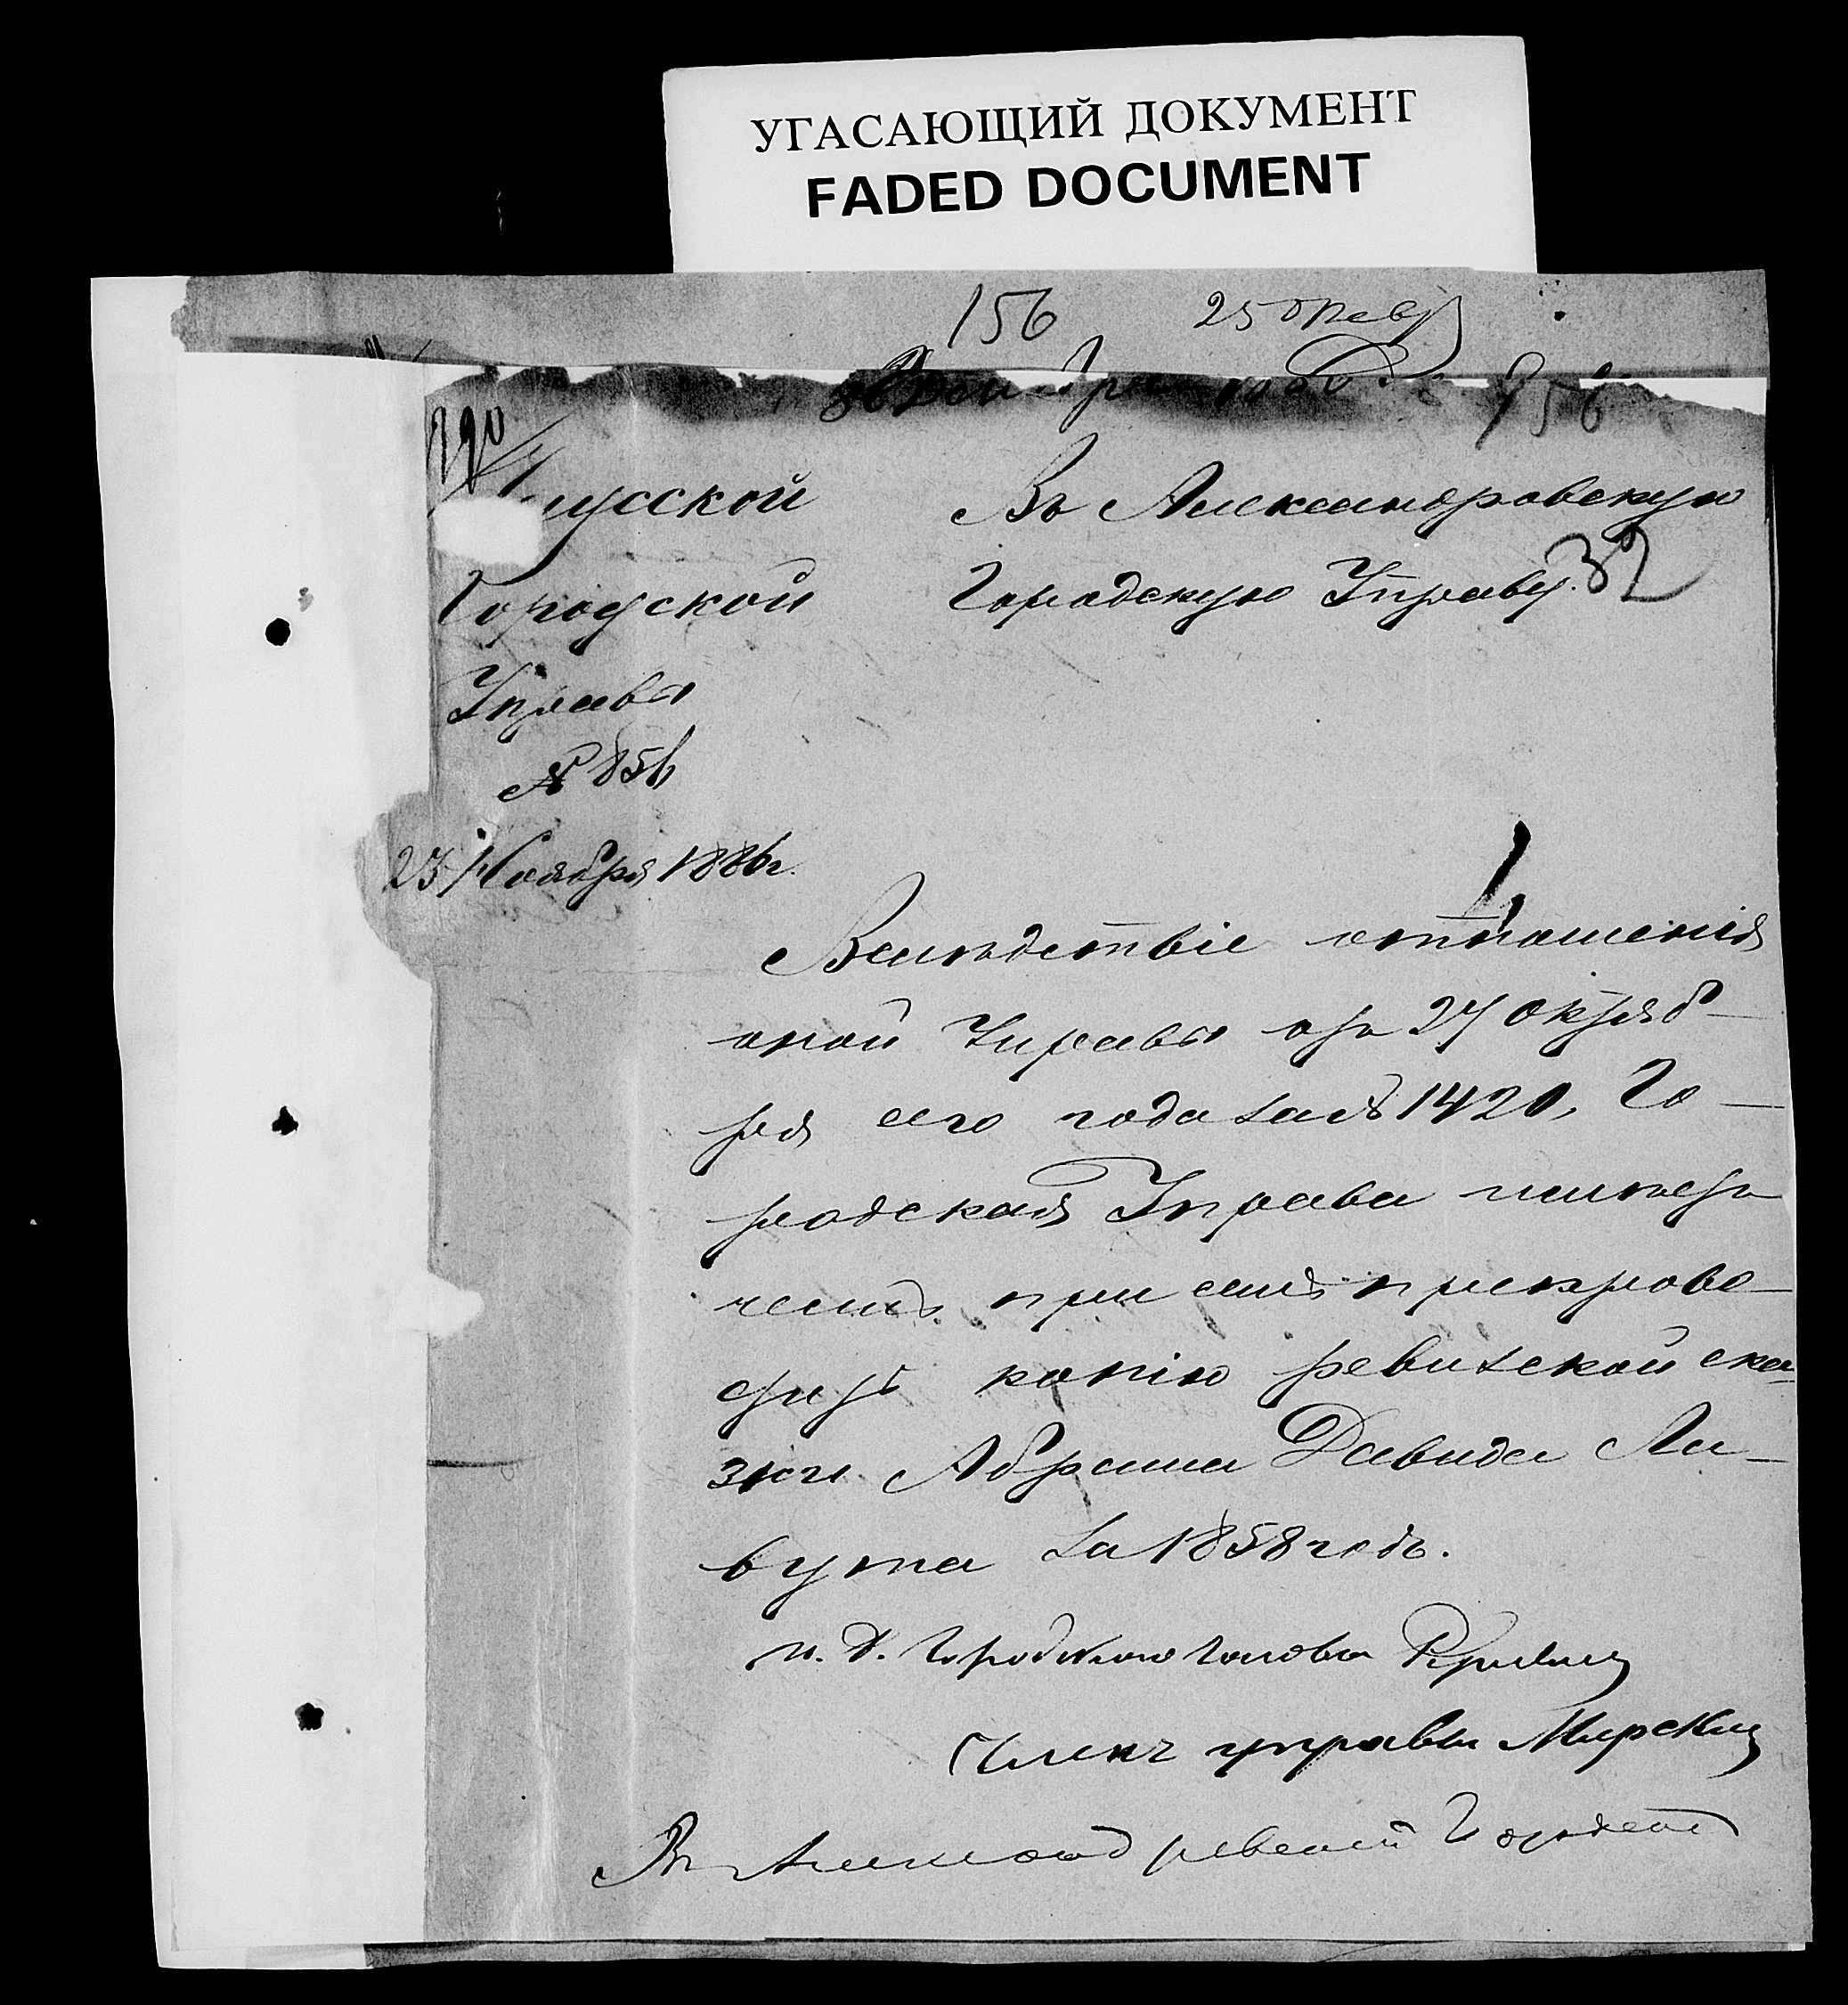 УГАСАЮЩИЙ ДОКУМЕНТ
FADED DOCUMENT
156
32
Городской
Управы
№ 856
23 Ноября 1886 г.
Въ Александровскую
Городскую Управу.
Вслѣдствіе отношенія
оной Управы отъ 27 Октяб-
ря сего года за № 1420, Го-
родская Управа имѣетъ
честь при семъ препрово-
дить копію ревизской ска-
зки Абрама Давида Ли-
вута за 1858 годъ.
И. д. Городского Головы
Членъ управы Мирскій